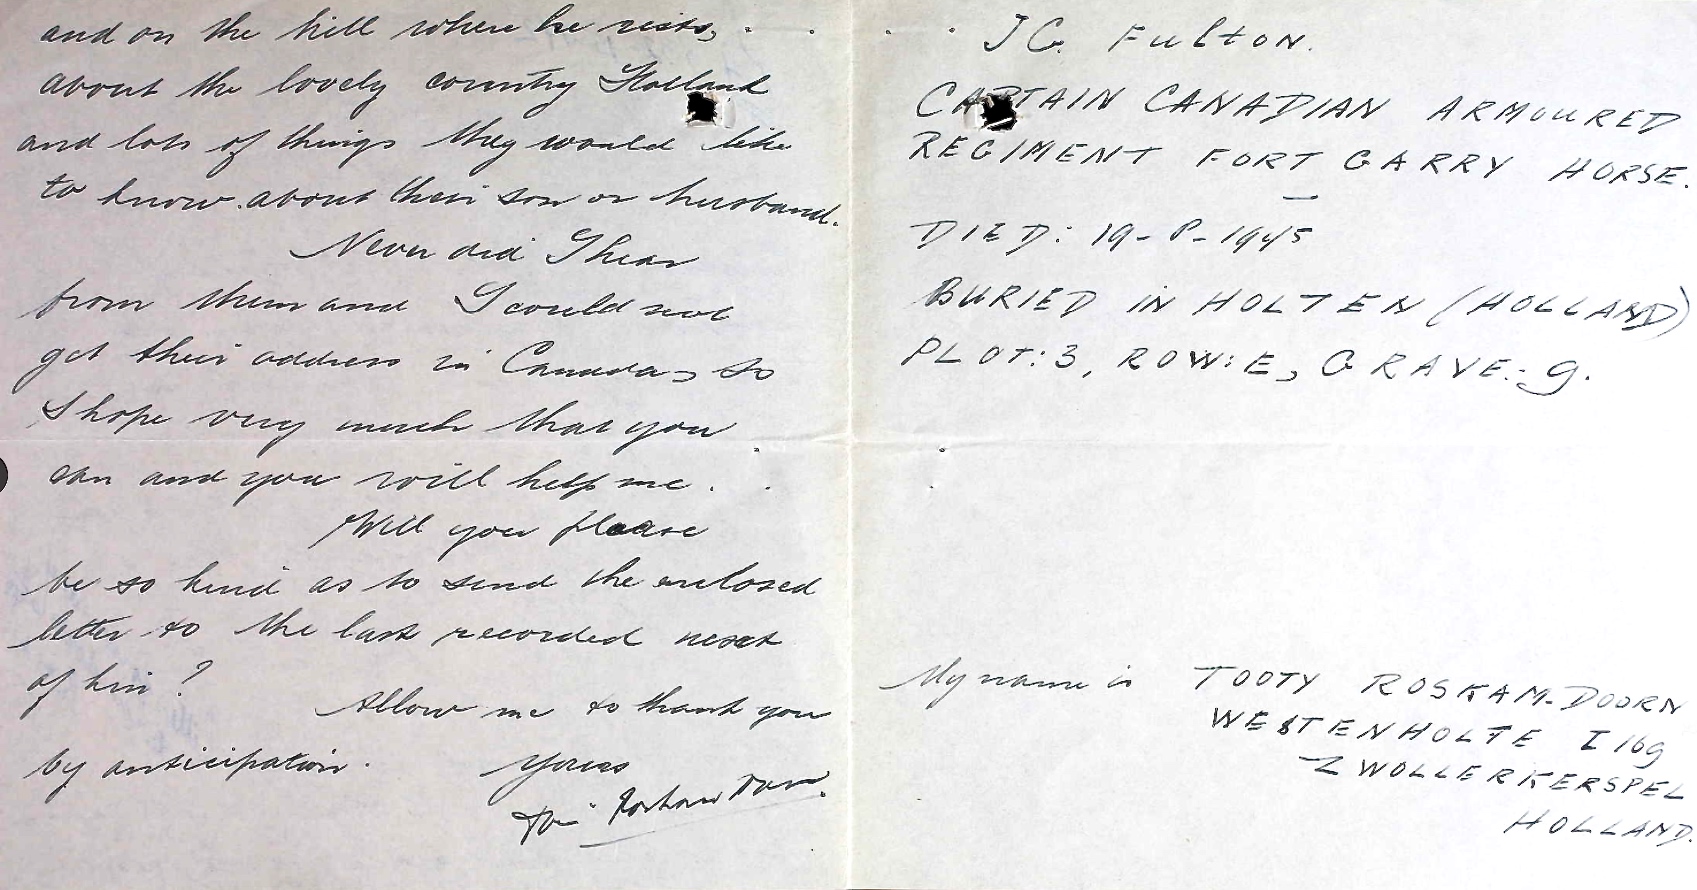 and on the hill where he rests,
about the lovely country Holland
and lots of things they would like
to know about their son or husband.
Never did I hear
from them and I could not
get their address in Canada, so
I hope very much that you
can and you will help me.
Will you please
be so kind as to send the enclosed
letter to the last recorded next
of kin?
Allow me to thank you
by anticipation.
Yours
JG. FULTON.
CAPTAIN CANADIAN ARMOURED
REGIMENT FORT GARRY HORSE.
DIED: 19-8-1945
BURIED IN HOLTEN (HOLLAND)
PLOT:3, ROW:E, GRAVE:9.
My name is TOOTY ROSKAM-DOORN
WESTENHOLTE I 169
ZWOLLERKERSPEL
HOLLAND.